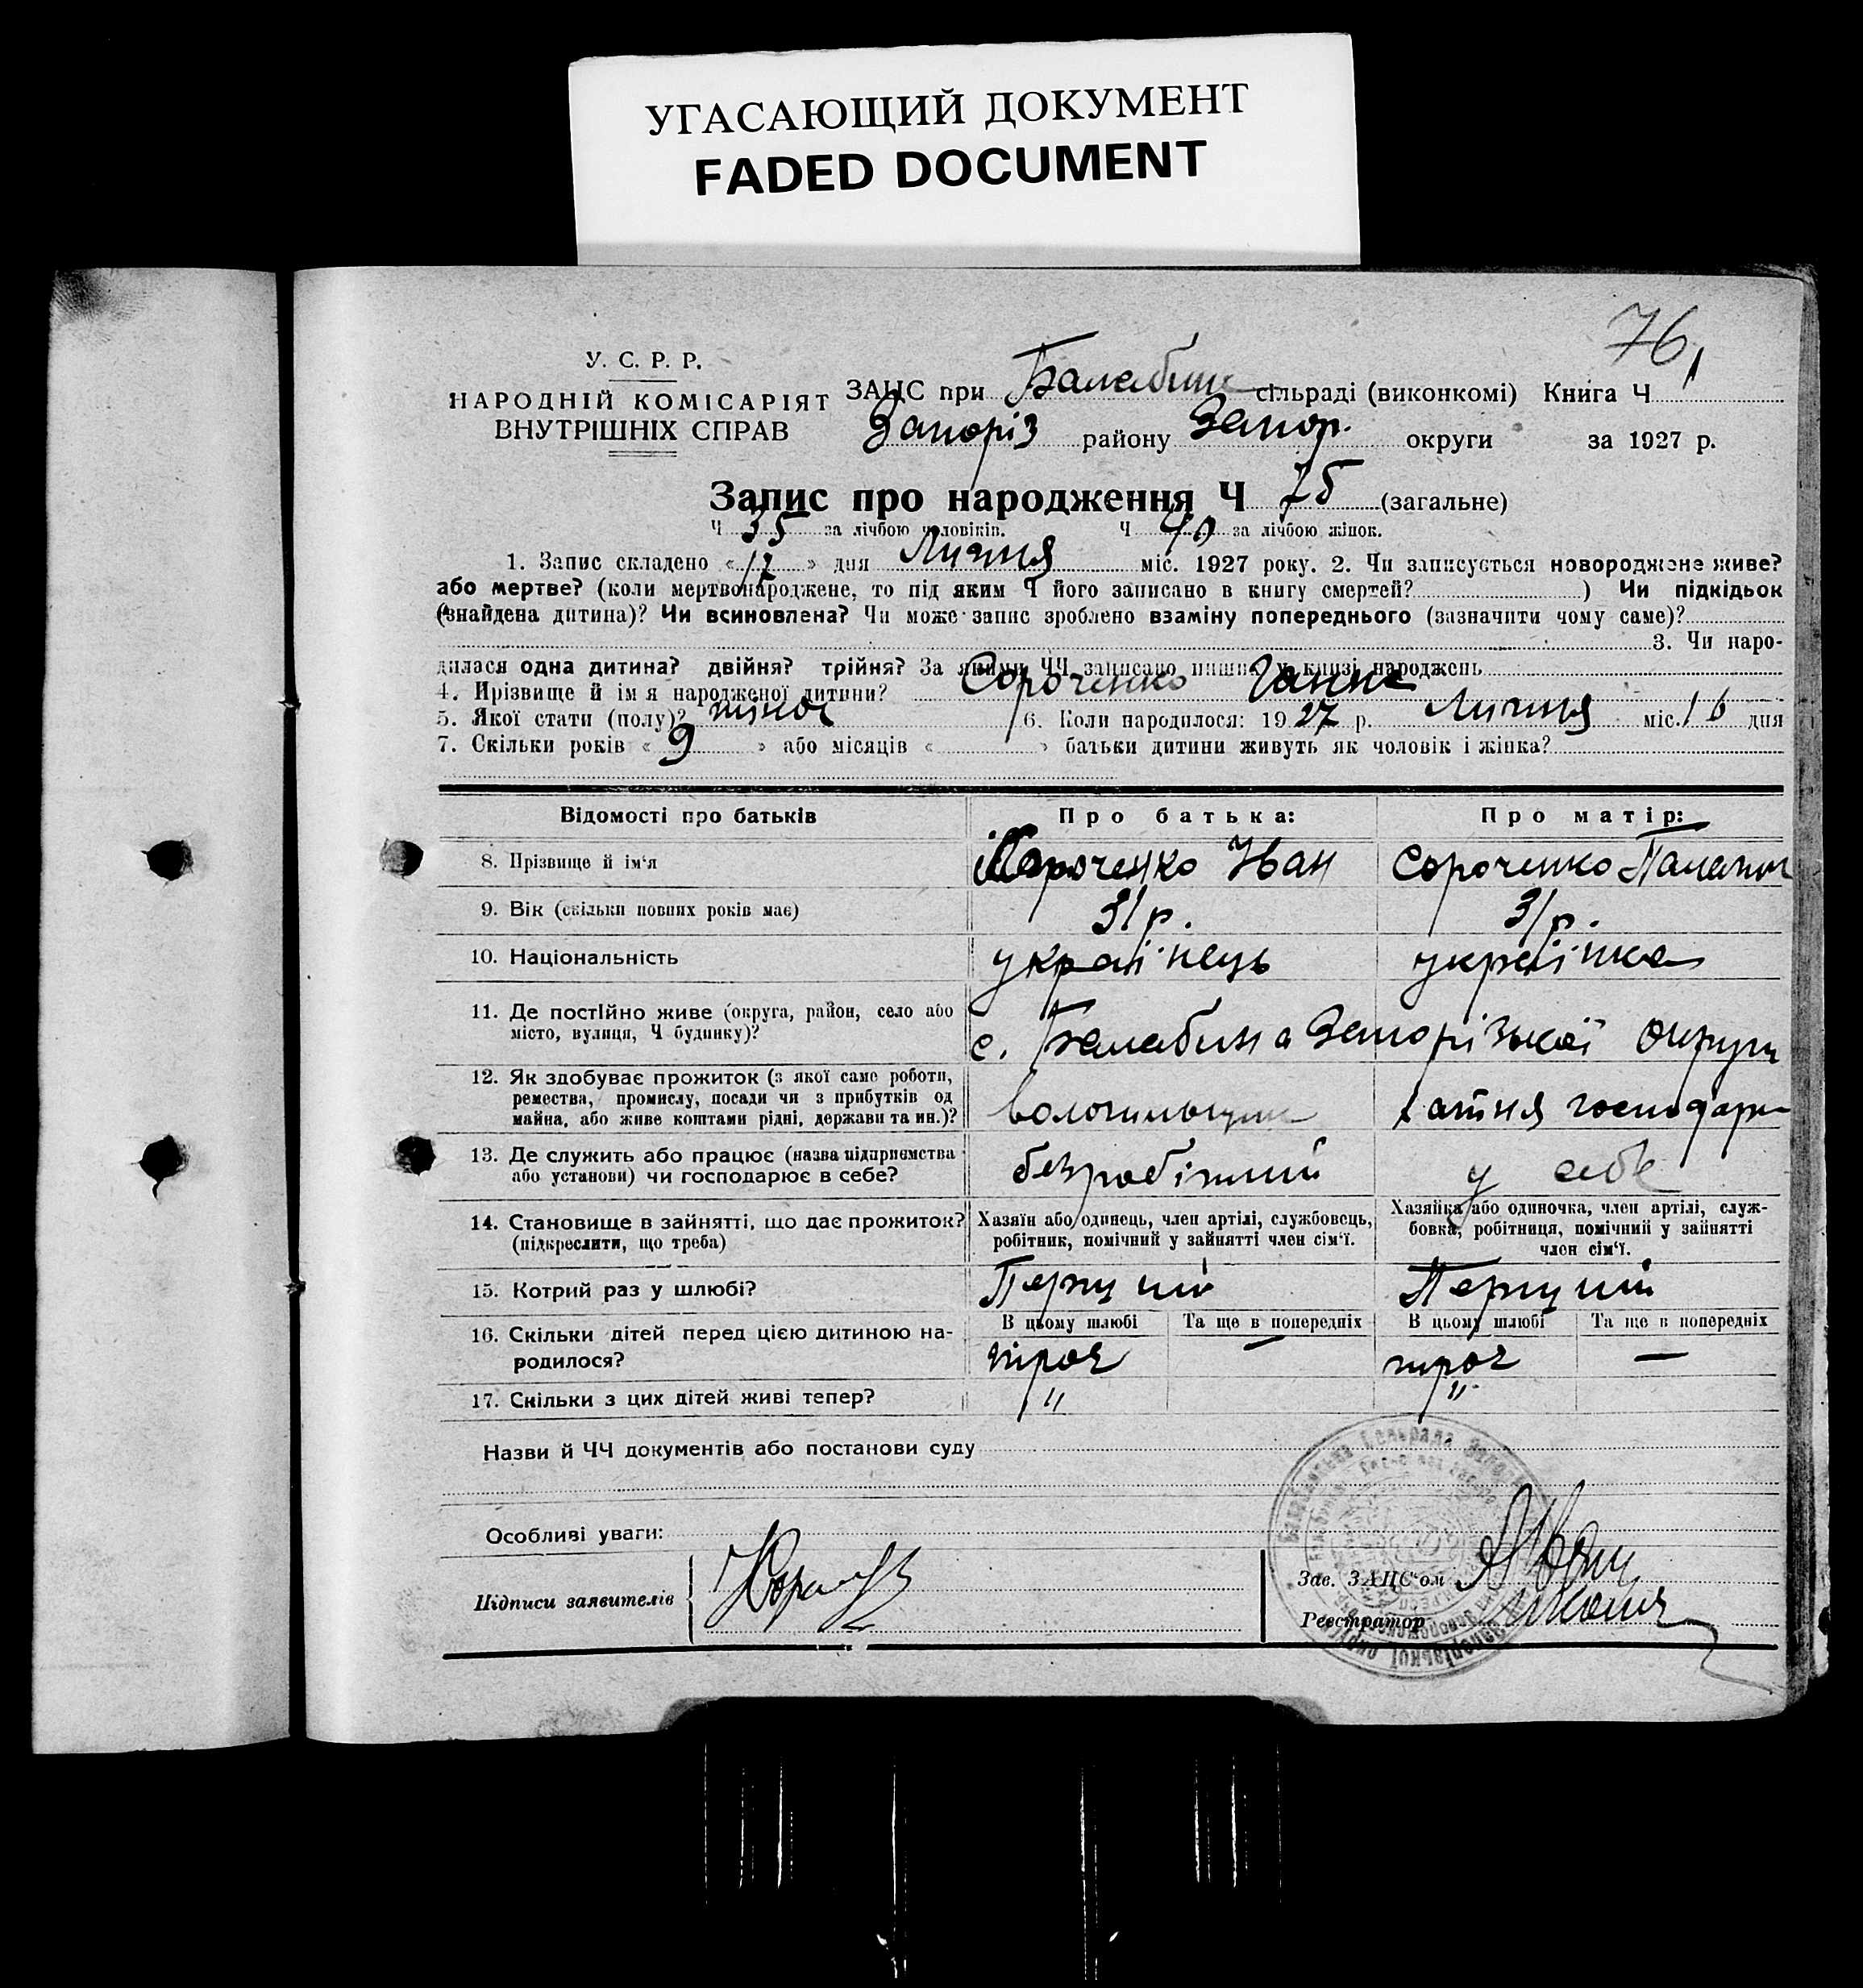 УГАСАЮЩИЙ ДОКУМЕНТ
FADED DOCUMENT
76
У. С. Р. Р.
НАРОДНІЙ КОМІСАРІЯТ
ВНУТРІШНІХ СПРАВ
ЗАЦС при Балабин сільраді (виконкомі) Книга Ч 1
Запоріз району Запор. округи за 1927 р.
Запис про народження Ч 75 (загальне)
Ч 35 за лічбою чоловіків. Ч 40 за лічбою жінок.
1. Запис складено « 17 » дня Липня міс. 1927 року. 2. Чи записується новороджене живе?
або мертве? (коли мертвонароджене, то під яким Ч його записано в книгу смертей? ) Чи підкідьок
(знайдена дитина)? Чи всиновлена? Чи може запис зроблено взаміну попереднього (зазначити чому саме)?
3. Чи наро-
дилася одна дитина? двійня? трійня? За якими ЧЧ записано инших у книзі народжень
4. Прізвище й ім'я народженої дитини? Сороченко Ганна
5. Якої стати (полу)? жіноч 6. Коли народилося: 1927 р. Липня міс. 16 дня
7. Скільки років « 9 » або місяців « » батьки дитини живуть як чоловік і жінка?
Відомості про батьків Про батька: Про матір:
8. Прізвище й ім'я Сороченко Иван Сороченко
9. Вік (скільки повних років має) 31 р. 31 р.
10. Національність украінець украінка
11. Де постійно живе (округа, район, село або
місто, вулиця, Ч будинку)? с. Балабина Запорізької округи
12. Як здобуває прожиток (з якої саме роботи,
ремества, промислу, посади чи з прибутків од
майна, або живе коштами рідні, держави та ин.)? хатня господарк
13. Де служить або працює (назва підприємства
або установи) чи господарює в себе? безробітний у себе
14. Становище в зайнятті, що дає прожиток?
(підкреслити, що треба)
Хазяїн або одинець, член артілі, службовець,
робітник, помічний у зайнятті член сім'ї.
Хазяйка або одиночка, член артілі, служ-
бовка, робітниця, помічний у зайнятті
член сім'ї.
15. Котрий раз у шлюбі? Перший Перший
16. Скільки дітей перед цією дитиною на-
родилося?
В цьому шлюбі Та ще в попередніх В цьому шлюбі Та ще в попередніх
троє — троє —
17. Скільки з цих дітей живі тепер? " "
Назви й ЧЧ документів або постанови суду
Особливі уваги:
Підписи заявителів
Зав. ЗАЦС'ом
Реєстратор